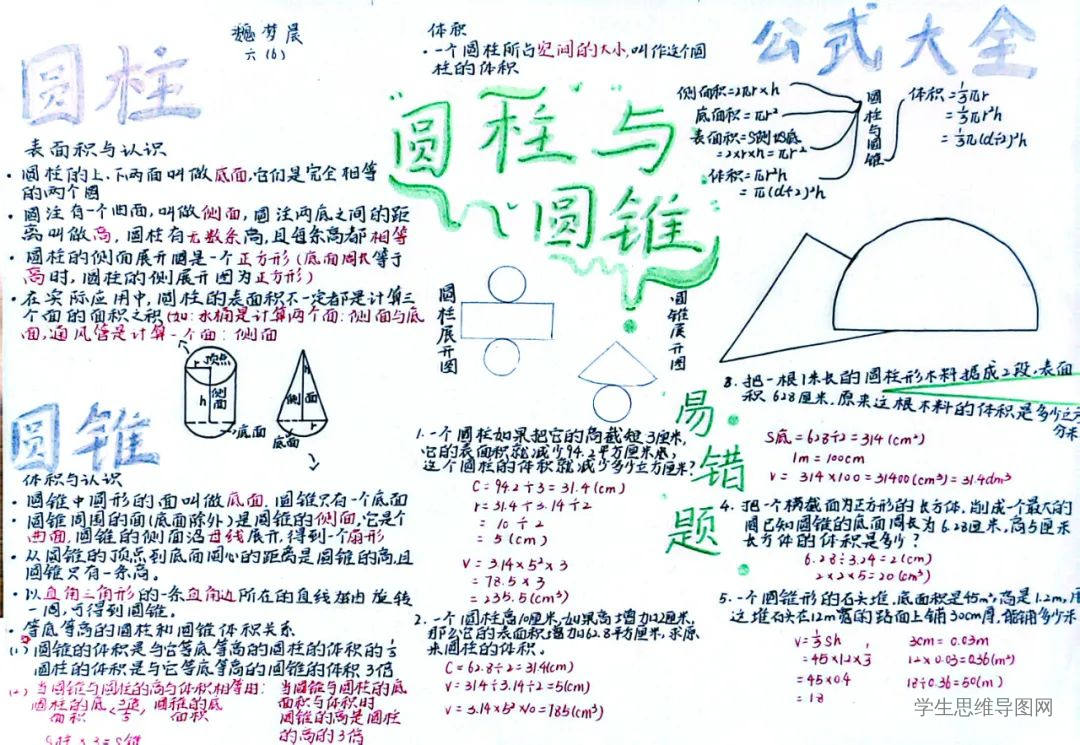 圆柱
魏梦晨
六(6)
表面积与认识
·圆柱的上、下两面叫做底面,它们是完全相等
的两个圆
·圆注有一个曲面,叫做侧面,圆注两底之间的距
离叫做高,圆柱有无数条高,且每条高都相等
·圆柱的侧面展开圆是一个正方形(底面周长等于
高时,圆柱的侧展开图为正方形)
·在实际应用中,圆柱的表面积不一定都是计算三
个面的面积之积(如:水桶是计算两个面:侧面与底
面,通风管是计算一个面:侧面
顶点
r
h
侧面
底面
h
侧面
r
底面
圆锥
体积与认识
·圆锥中圆形的面叫做底面.圆锥只有一个底面
·圆锥周围的面(底面除外)是圆锥的侧面,它是个
曲面.圆锥的侧面沿母线展开,得到一个扇形
·从圆锥的顶点到底面圆心的距离是圆锥的高,且
圆锥只有一条高。
·以直角三角形的一条直角边所在的直线为轴旋转
一周,可得到圆锥。
·等底等高的圆柱和圆锥体积关系
(1)圆锥的体积是与它等底等高的圆柱的体积的⅓
圆柱的体积是与它等底等高的圆锥的体积3倍
(2)当圆锥与圆柱的高与体积相等用:
圆柱的底面积
圆锥的底面积
当圆锥与圆柱的底
面积与体积时
圆锥的高是圆柱
的高的3倍
体积
·一个圆柱所占空间的大小,叫作这个圆
柱的体积
"圆柱与
圆锥"
圆柱展开图
圆锥展开图
1.一个圆柱如果把它的高截短3厘米,
它的表面积就减少94.2平方厘米底,
这个圆柱的体积就减少多少立方厘米?
C=94.2÷3=31.4(cm)
r=31.4÷3.14÷2
=10÷2
=5(cm)
V=3.14×5²×3
=78.5×3
=235.5(cm³)
2.一个圆柱高10厘米,如果高增加2厘米,
那么它的表面积增加62.8平方厘米,求原
来圆柱的体积。
C=62.8÷2=314(cm)
V=314÷3.14÷2=5(cm)
V=3.14×5²×10=785(cm³)
公式大全
侧面积=2πr×h
底面积=πr²
表面积=S侧+S底
=2×r×h=πr²
体积=πr²h
=π(d÷2)²h
圆柱与圆锥
体积=⅓πr
=⅓πr²h
=⅓π(d÷2)²h
易错题
3.把一根1米长的圆柱形木料据成2段,表面
积628厘米.原来这根木料的体积是多少立方
分米
S底=628÷2=314(cm²)
1m=100cm
V=314×100=31400(cm³)=31.4dm³
4.把一个横截面为正方形的长方体,削成一个最大的
圆已知圆锥的底面周长为6.28厘米,高5厘米
长方体的体积是多少?
6.28÷3.24=2(cm)
2×2×5=20(cm³)
5.一个圆锥形的石头堆.底面积是45m²,高是1.2m,用
这堆石头在12m宽的路面上铺30cm厚,能铺多少米
V=⅓Sh,
=45×12×3
=45×0.4
=18
3cm=0.03m
12×0.03=0.36(m²)
18÷0.36=50(m)
学生思维导图网